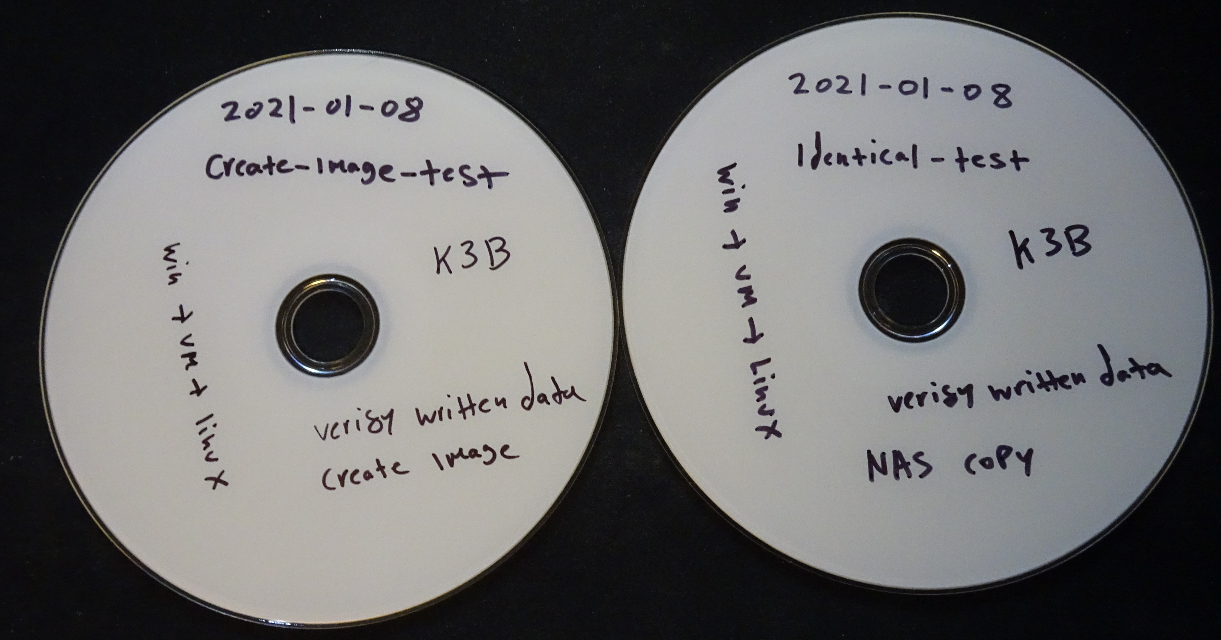 2021-01-08
Create-Image-test
K3B
Win + VM + linux
verify written data
create image
2021-01-08
Identical-test
K3B
Win + VM + Linux
verify written data
NAS copy